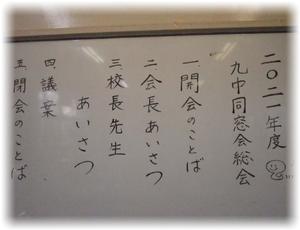 二〇二一年度
九中同窓会総会
一、開会のことば
二、会長あいさつ
三、校長先生
あいさつ
四、議案
五、閉会のことば